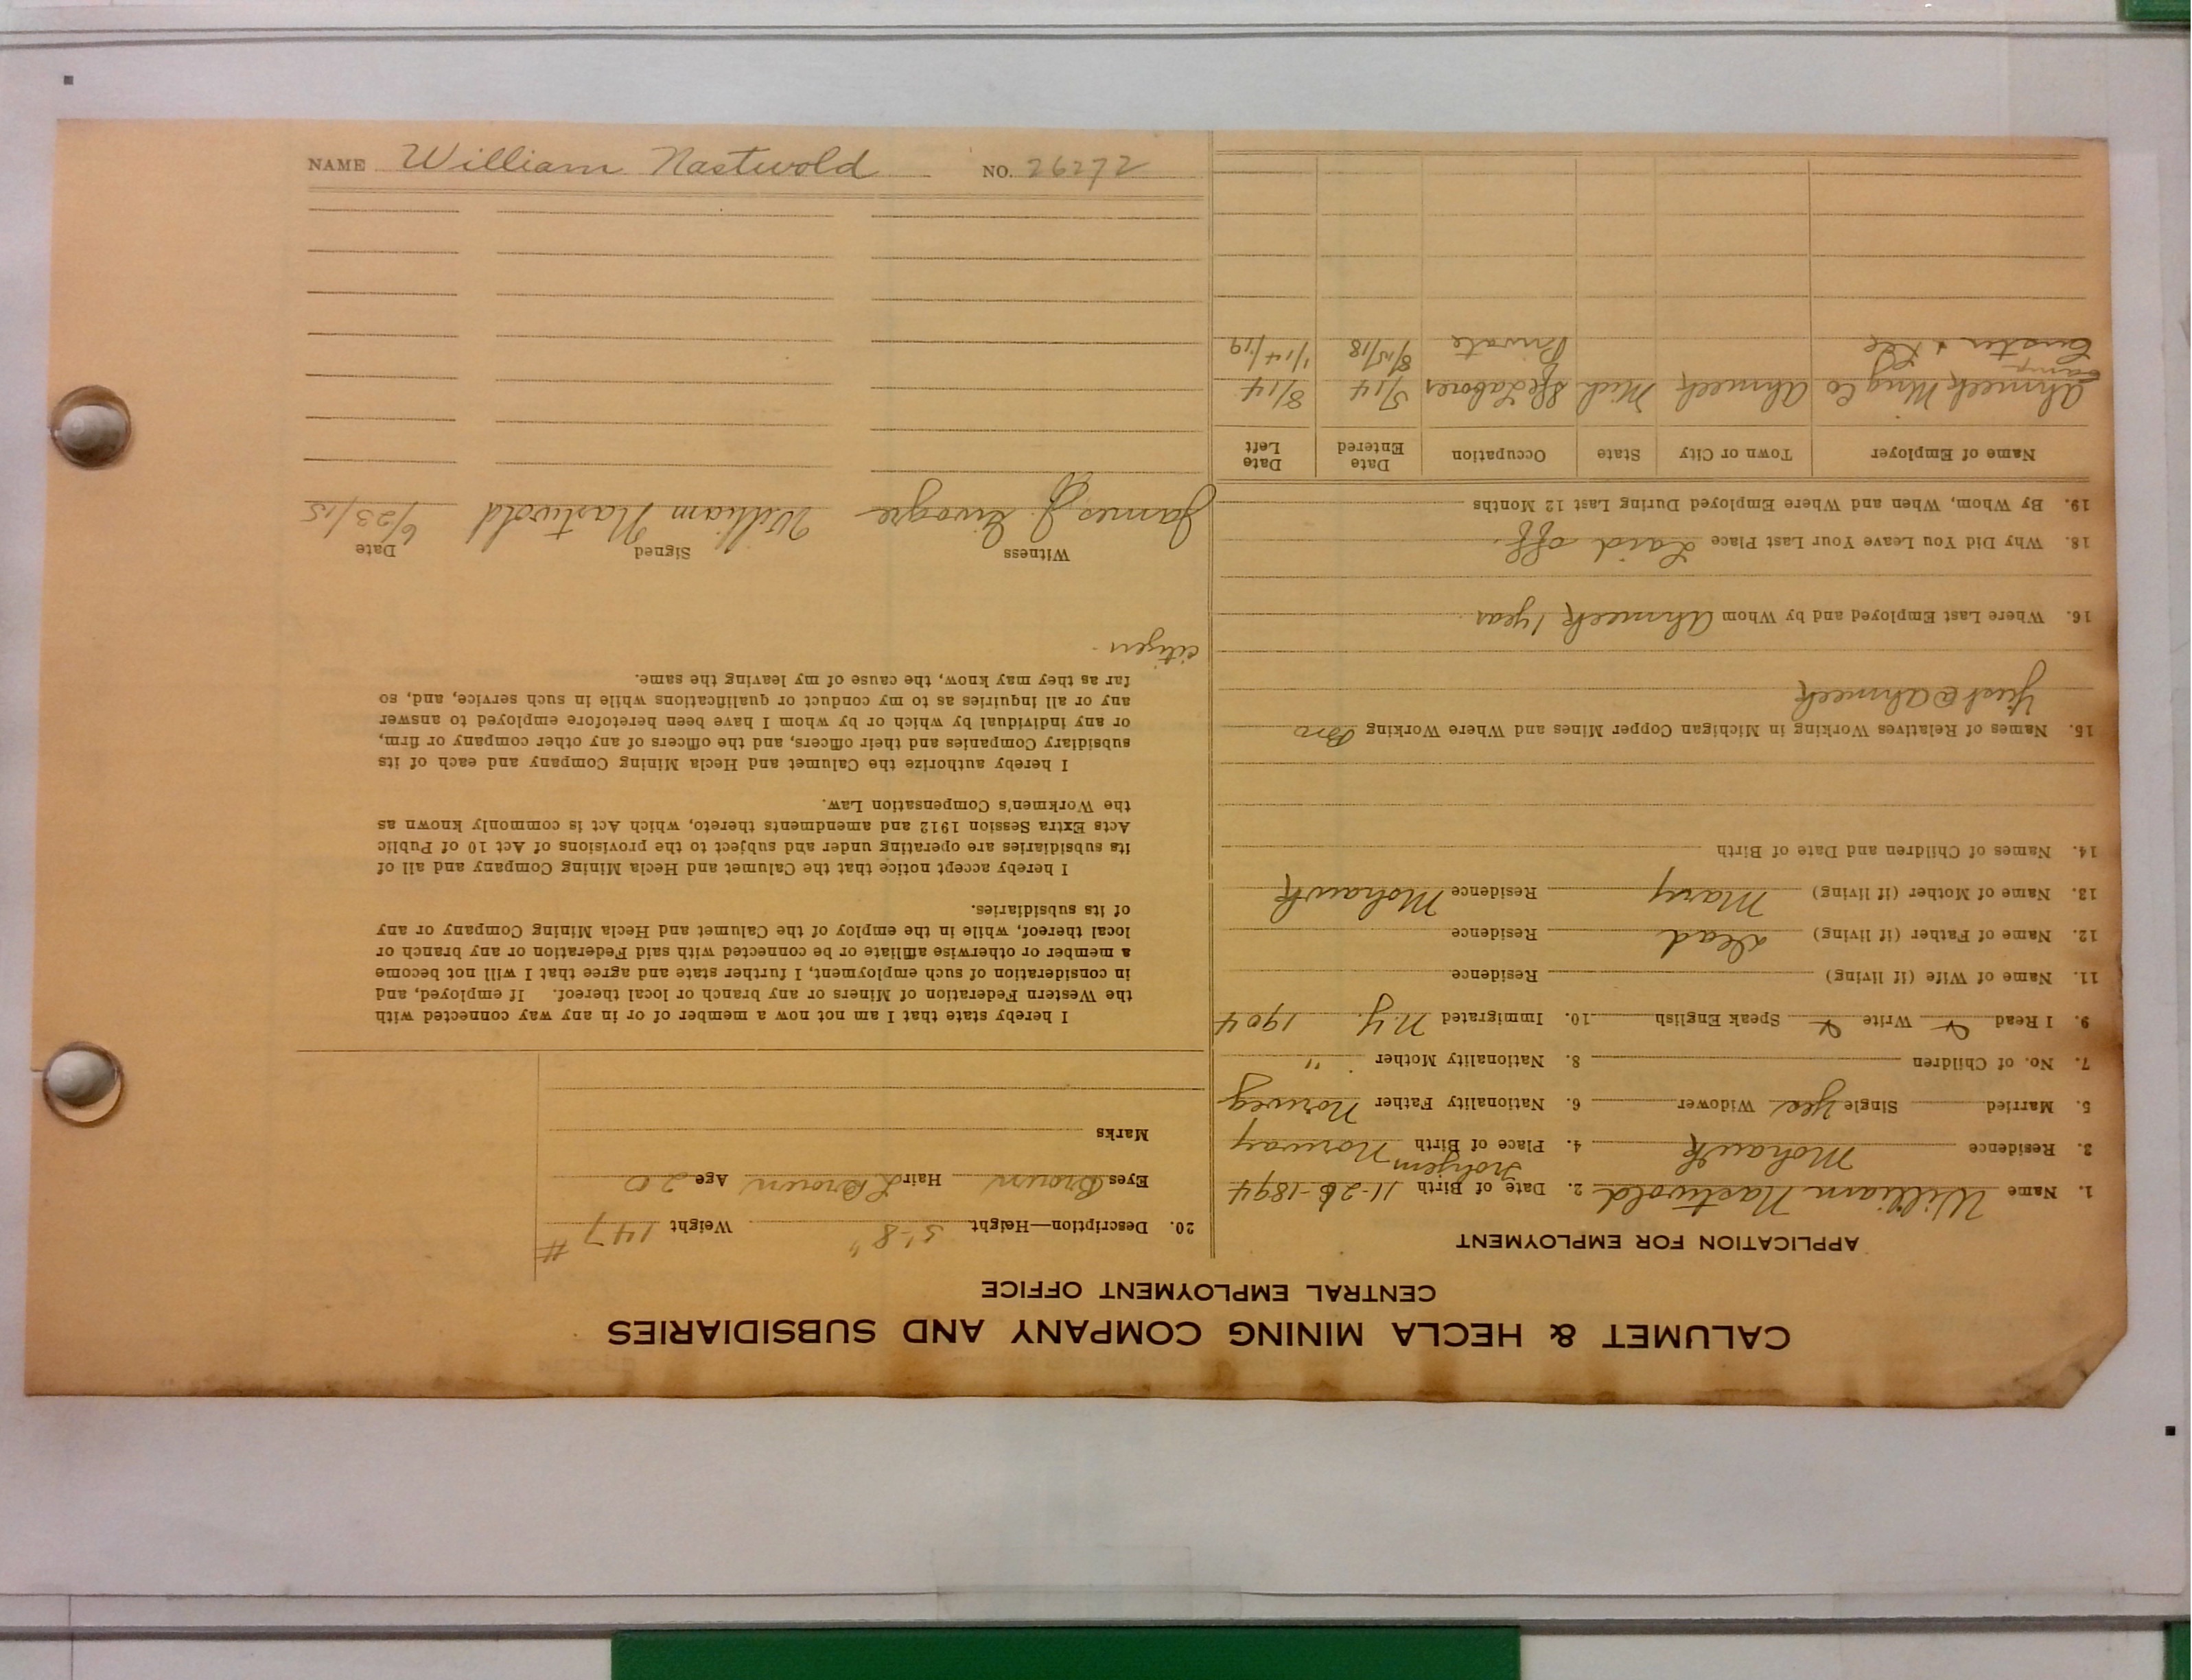 CALUMET & HECLA MINING COMPANY AND SUBSIDIARIES
CENTRAL EMPLOYMENT OFFICE
APPLICATION FOR EMPLOYMENT
1. Name William Nastwold 2. Date of Birth 11-26-1894
3. Residence Mohawk 4. Place of Birth Norway
5. Married Single Yes Widower 6. Nationality Father Norweg
7. No. of Children 8. Nationality Mother "
9. I Read Write Speak English 10. Immigrated N.Y. 1904
11. Name of Wife (if living) Residence
12. Name of Father (if living) Dead Residence
13. Name of Mother (if living) Mary Residence Mohawk
14. Names of Children and Date of Birth
15. Names of Relatives Working in Michigan Copper Mines and Where Working Bro
@ Ahmeek
16. Where Last Employed and by Whom Ahmeek 1 year
18. Why Did You Leave Your Last Place Laid off.
19. By Whom, When and Where Employed During Last 12 Months
Name of Employer Town or City State Occupation Date Entered Date Left
Ahmeek Mng Co Ahmeek Mich Laborer 5/14 8/14
Camp
Custer Private 8/15/18 1/14/19
20. Description—Height 5'-8" Weight 147#
Eyes Brown Hair L Brown Age 20
Marks
I hereby state that I am not now a member of or in any way connected with
the Western Federation of Miners or any branch or local thereof. If employed, and
in consideration of such employment, I further state and agree that I will not become
a member or otherwise affiliate or be connected with said Federation or any branch or
local thereof, while in the employ of the Calumet and Hecla Mining Company or any
of its subsidiaries.
I hereby accept notice that the Calumet and Hecla Mining Company and all of
its subsidiaries are operating under and subject to the provisions of Act 10 of Public
Acts Extra Session 1912 and amendments thereto, which Act is commonly known as
the Workmen's Compensation Law.
I hereby authorize the Calumet and Hecla Mining Company and each of its
subsidiary Companies and their officers, and the officers of any other company or firm,
or any individual by which or by whom I have been heretofore employed to answer
any or all inquiries as to my conduct or qualifications while in such service, and, so
far as they may know, the cause of my leaving the same.
citizen.
Witness Signed Date
James J. William Nastwold 6/23/15
NAME William Nastwold NO. 26272